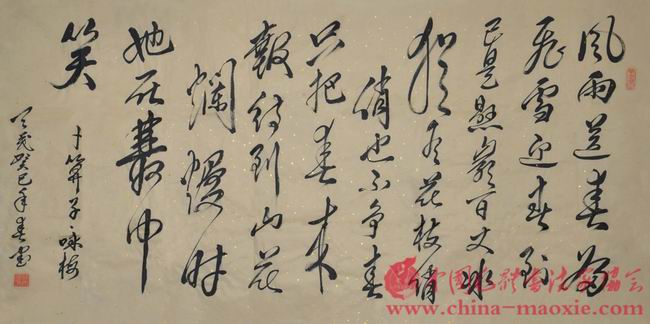 风雨送春归
飞雪迎春到
已是懸崖百丈冰
犹有花枝俏
俏也不争春
只把春来
報待到山花
爛熳时
她在叢中
笑
卜算子咏梅
癸巳年春書
www.china-maoxie.com